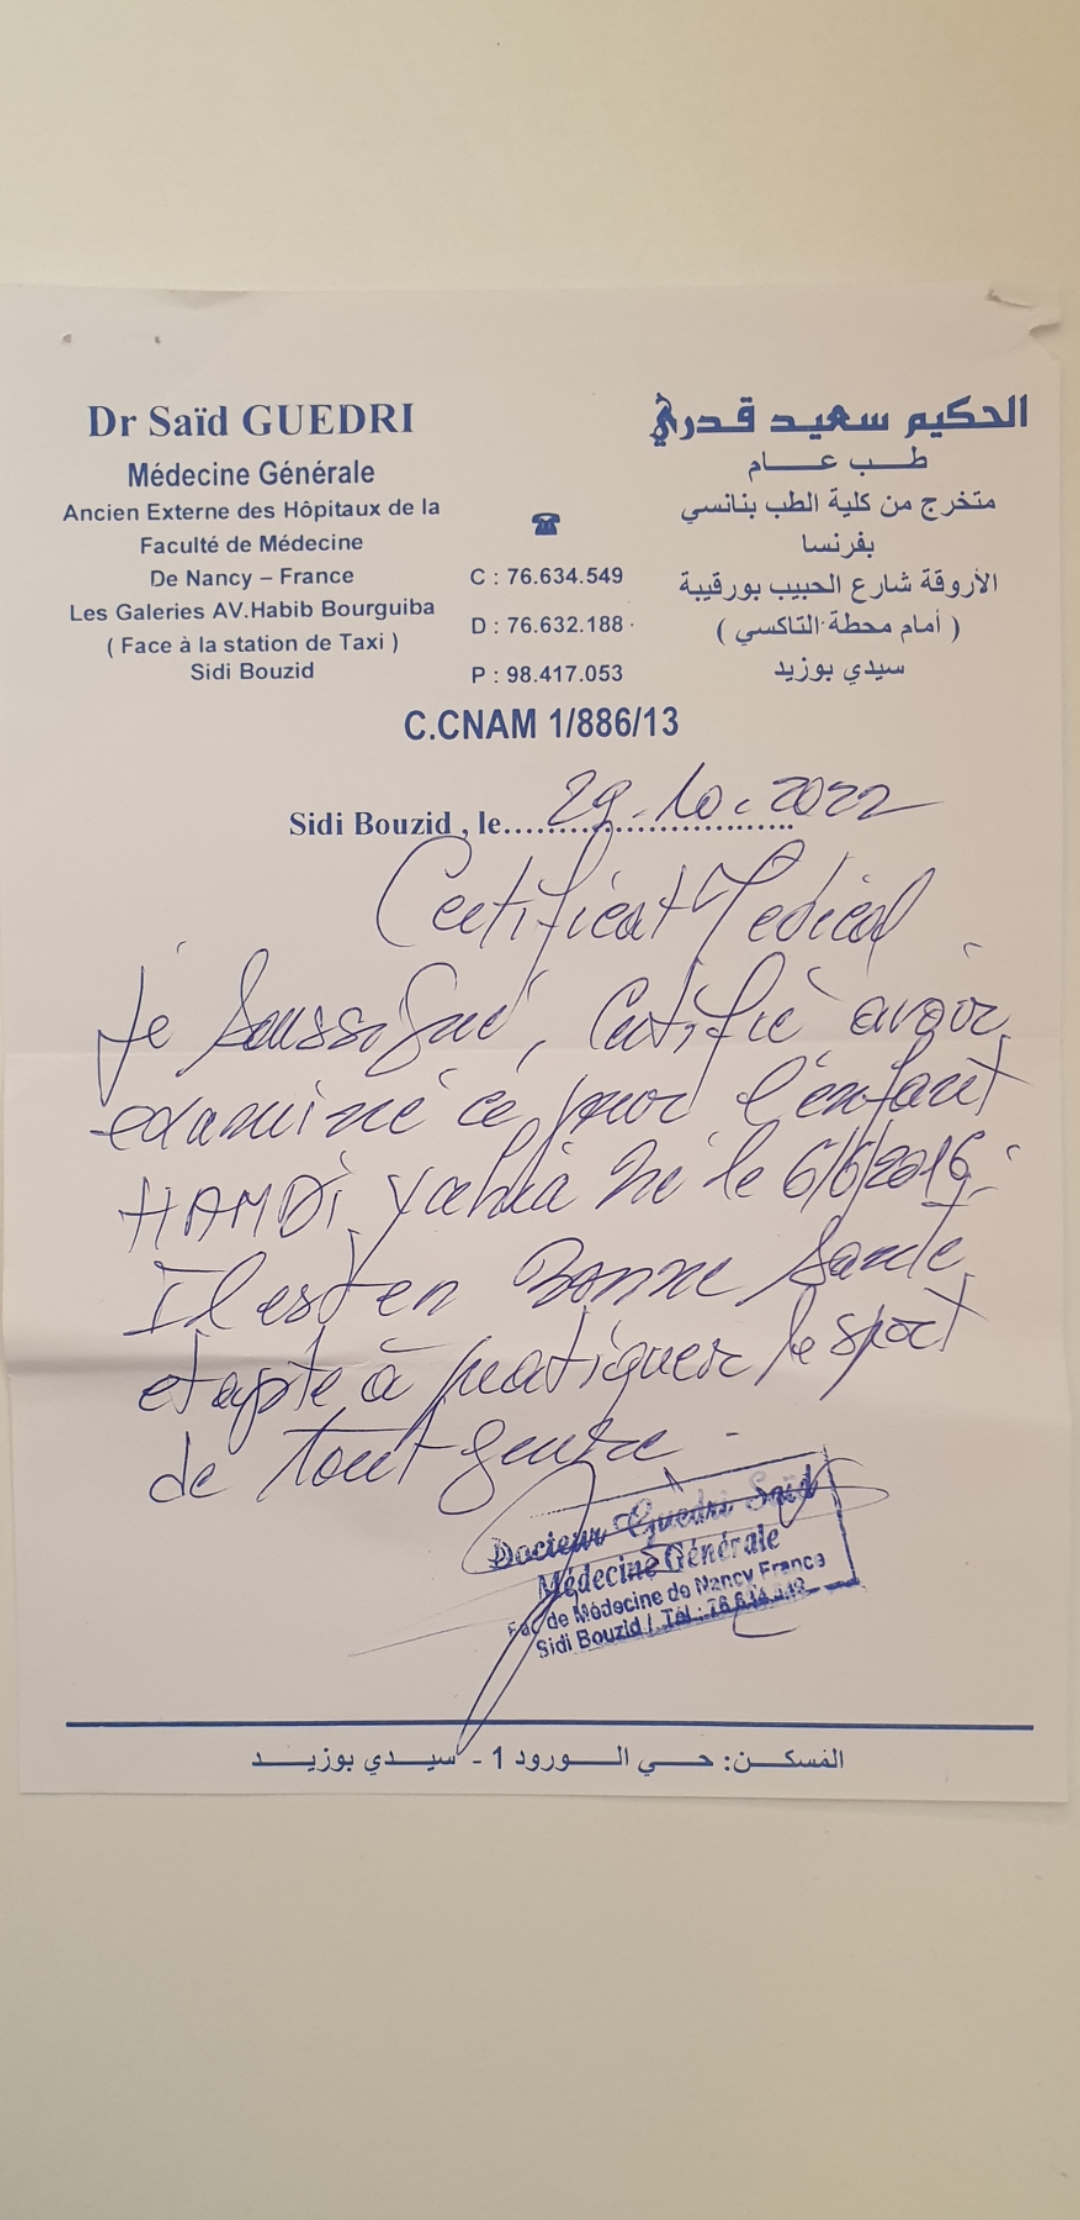 Dr Saïd GUEDRI
Médecine Générale
Ancien Externe des Hôpitaux de la
Faculté de Médecine
De Nancy – France
Les Galeries AV.Habib Bourguiba
( Face à la station de Taxi )
Sidi Bouzid
☎
C : 76.634.549
D : 76.632.188
P : 98.417.053
الحكيم سعيد قدري
طب عام
متخرج من كلية الطب بنانسي
بفرنسا
الأروقة شارع الحبيب بورقيبة
( أمام محطة التاكسي )
سيدي بوزيد
C.CNAM 1/886/13
Sidi Bouzid , le.... 29.10.2022
Certificat Medical
Je Soussigné, Certifie avoir
examiné ce jour l'enfant
HAMDI Yahia Né le 6/6/2016.
Il est en Bonne Santé
et apte à pratiquer le sport
de tout genre.
Docteur Guedri Saïd
Médecine Générale
Fac de Médecine de Nancy France
Sidi Bouzid / Tél : 76.634.549
المسكن: حي الورود 1 - سيدي بوزيد